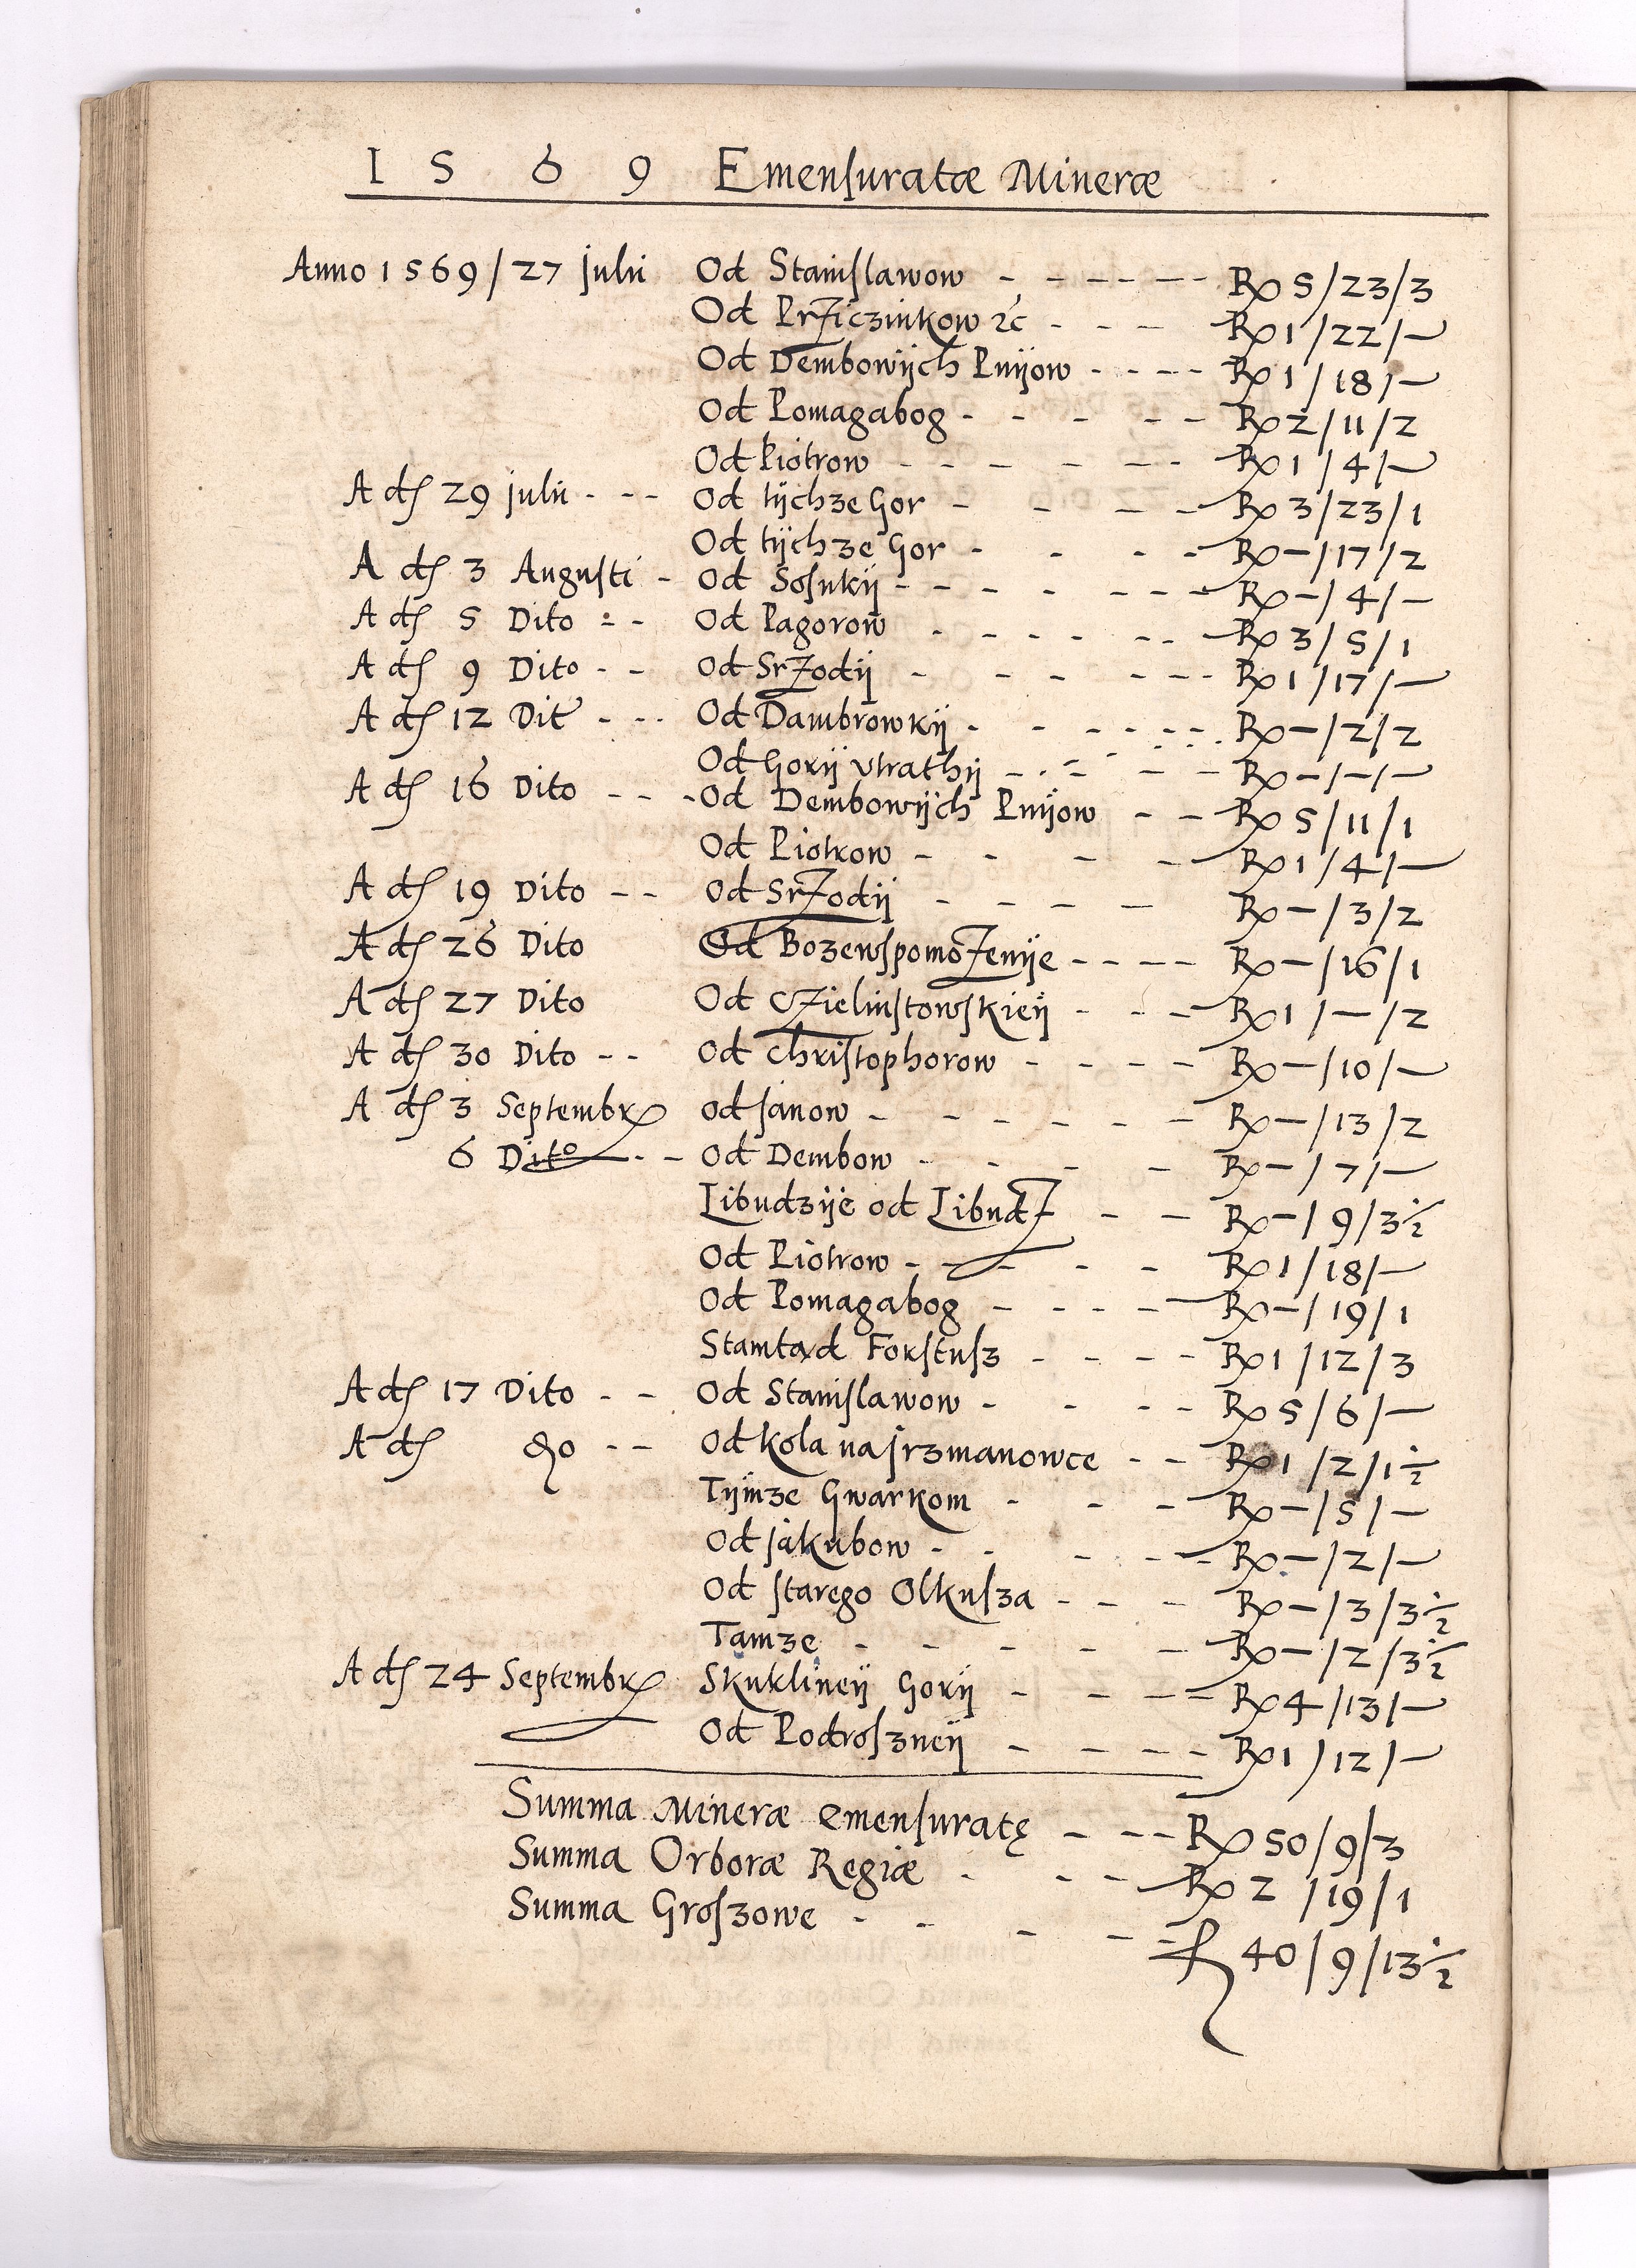 1 5 6 9 Emensuratæ Mineræ
Anno 1569 / 27 julii Od Stanislawow - - - - - - Rx 5/23/3
Od Prziczinkow ꝛc - - - Rx 1/22/—
Od Dembowijch Pnijow - - - - Rx 1/18/—
Od Pomagabog - - - - - Rx 2/11/2
Od Piotrow - - - - - - Rx 1/4/—
A ds 29 julii - - - Od tijchze Gor - - - - Rx 3/23/1
Od tijchze Gor - - - - Rx —/17/2
A ds 3 Augusti - Od Sosnkij - - - - - - - Rx —/4/—
A ds 5 Dito - - Od Pagorow - - - - - - Rx 3/5/1
A ds 9 Dito - - Od Srzodij - - - - - - Rx 1/17/—
A ds 12 Dit - - - Od Dambrowkij - - - - - - Rx —/2/2
Od Gorij utrathij - - - - - Rx —/—/—
A ds 16 Dito - - - Od Dembowijch Pnijow - - Rx 5/11/1
Od Piotrow - - - - Rx 1/4/—
A ds 19 Dito - - Od Srzodij - - - - Rx —/3/2
A ds 26 Dito Od Bozenspomozenije - - - - Rx —/16/1
A ds 27 Dito Od Czielinstowskieij - - - Rx 1/—/2
A ds 30 Dito - - Od Christophorow - - - - Rx —/10/—
A ds 3 Septembr Od janow - - - - - - Rx —/13/2
6 Dito - - Od Dembow - - - - Rx —/7/—
Libudzije od Libudz - - Rx —/9/3½
Od Piotrow - - - - - Rx 1/18/—
Od Pomagabog - - - - Rx —/19/1
Stamtad Forstusz - - - - Rx 1/12/3
A ds 17 Dito - - Od Stanislawow - - - - Rx 5/6/—
A ds do - - Od kola na jrzmanowce - - Rx 1/2/1½
Tijmze Gwarkom - - - Rx —/5/—
Od jakubow - - - - - Rx —/2/—
Od starego Olkusza - - - Rx —/3/3½
Tamze - - - - - Rx —/2/3½
A ds 24 Septembr Skuklineij Gorij - - - - Rx 4/13/—
Od Podroszneij - - - - Rx 1/12/—
Summa Mineræ emensuratę - - - Rx 50/9/3
Summa Orboræ Regiæ - - - Rx 2/19/1
Summa Groszowe - - - - - f 40/9/13½